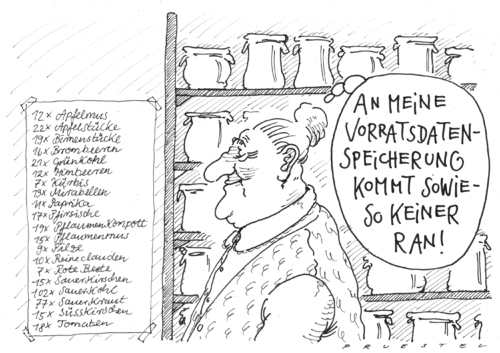 12x Apfelmus
22x Apfelstücke
19x Birnenstücke
16x Brombeeren
21x Grünkohl
12x Himbeeren
7x Kürbis
19x Mirabellen
11x Paprika
17x Pfirsische
19x Pflaumenkompott
15x Pflaumenmus
9x Pilze
10x Reineclauden
7x Rote Beete
15x Sauerkirschen
102x Sauerkohl
77x Sauerkraut
15x Süsskirschen
18x Tomaten
AN MEINE
VORRATSDATEN-
SPEICHERUNG
KOMMT SOWIE-
SO KEINER
RAN!
PRUESTEL